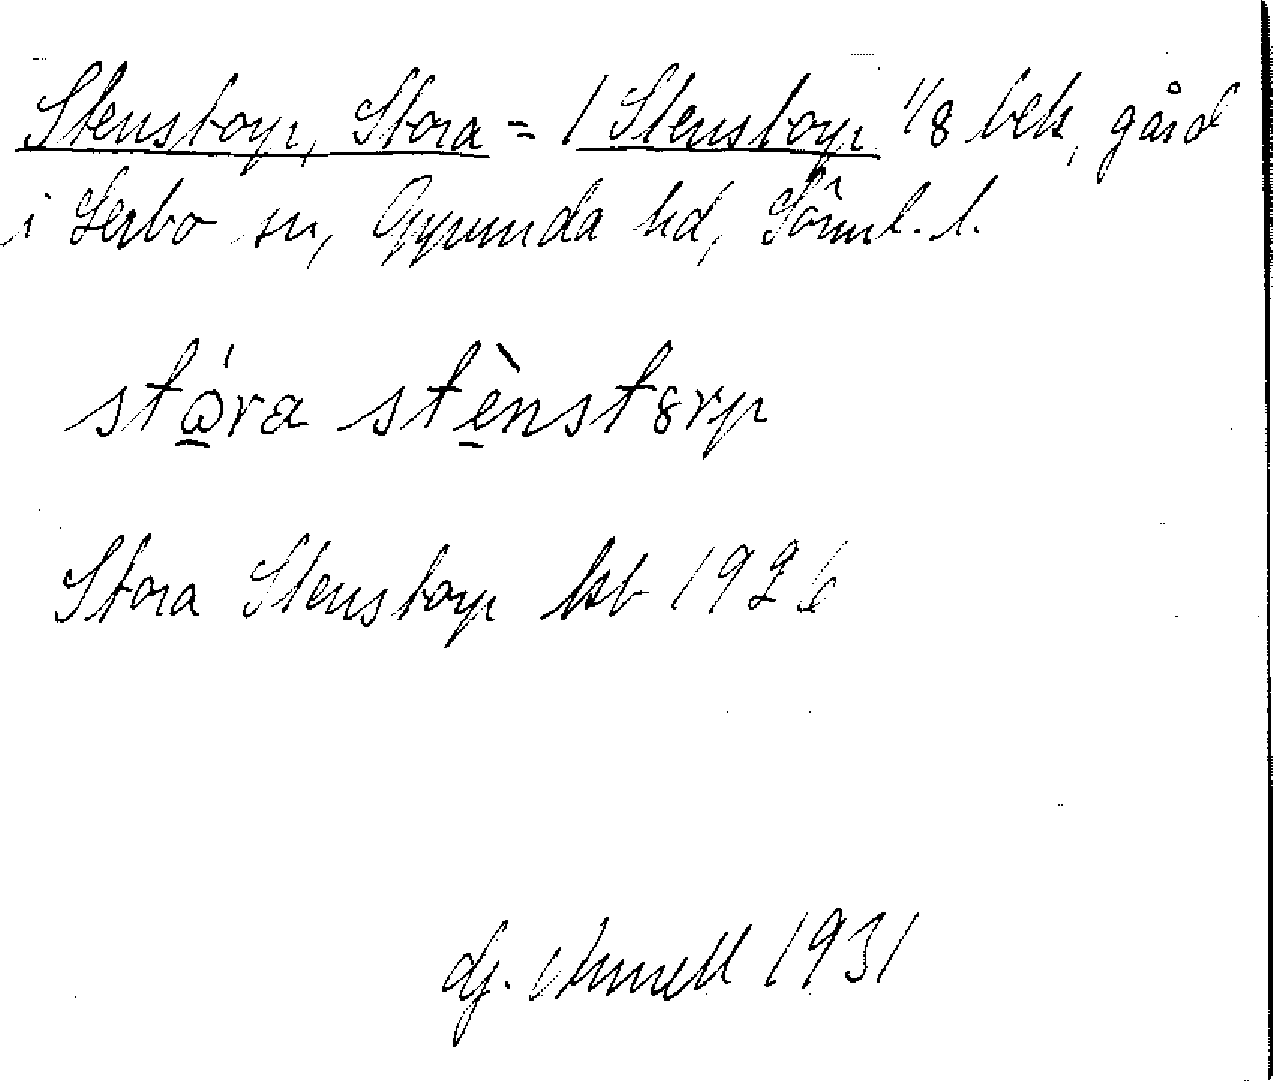 Stenstorp, Stora = 1 Stenstorp 1/8 hels, gård
i Lerbo sn, Oppunda hd, Söml. l.
stώ̲ra stè̲nstørp
Stora Stenstorp ksb 1926
G. Arnell 1931